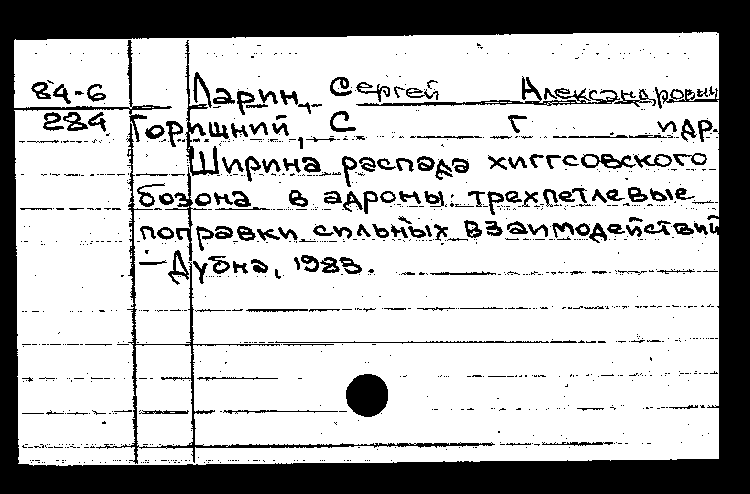 84-6 Ларин, Сергей Александрович
284 Горишний, С Г и др.
Ширина распада хиггсовского
бозона в адроны: трехпетлевые
поправки сильных взаимодействий
—Дубна, 1983.